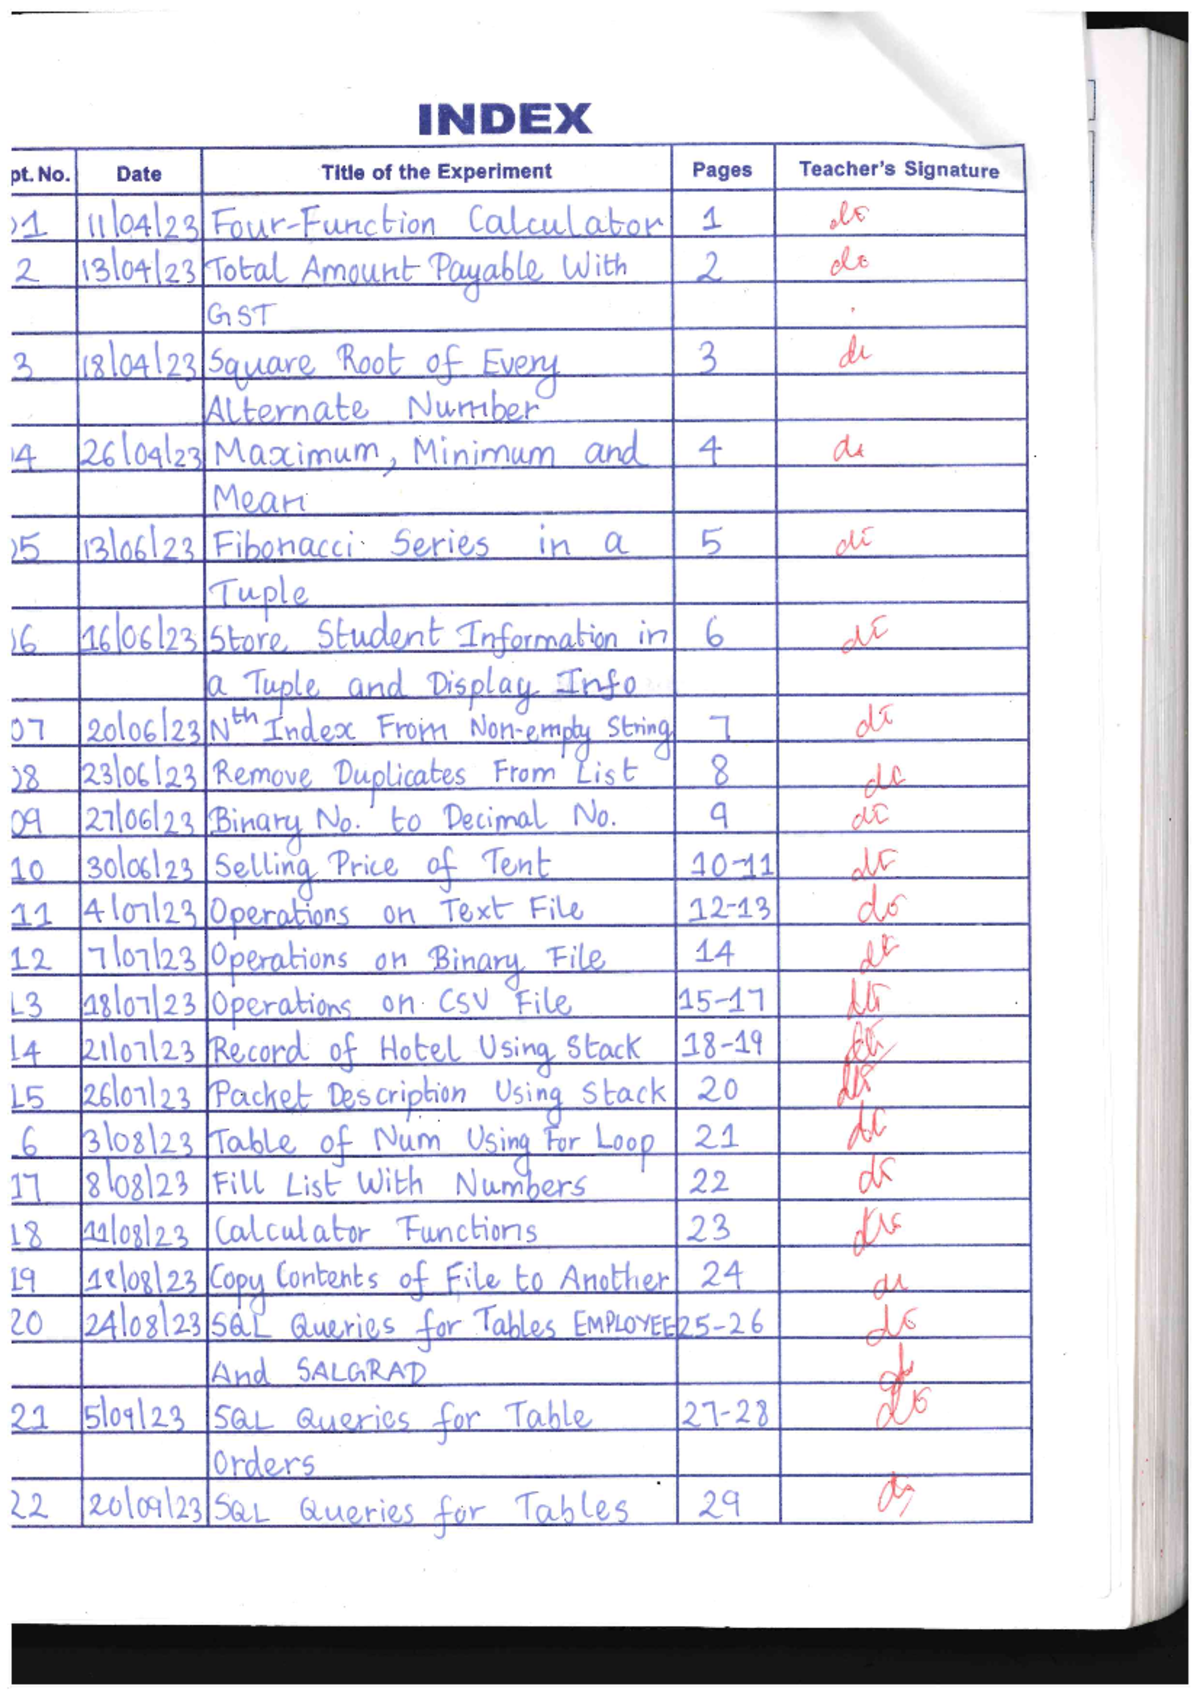 INDEX
pt. No. Date Title of the Experiment Pages Teacher's Signature
01 11/04/23 Four-Function Calculator 1
2 13/04/23 Total Amount Payable With 2
GST
3 18/04/23 Square Root of Every 3
Alternate Number
4 26/04/23 Maximum, Minimum and 4
Mean
05 13/06/23 Fibonacci Series in a 5
Tuple
06 16/06/23 Store Student Information in 6
a Tuple and Display Info
07 20/06/23 Nth Index From Non-empty String 7
08 23/06/23 Remove Duplicates From List 8
09 27/06/23 Binary No. to Decimal No. 9
10 30/06/23 Selling Price of Tent 10-11
11 4/07/23 Operations on Text File 12-13
12 7/07/23 Operations on Binary File 14
13 18/07/23 Operations on CSV File 15-17
14 21/07/23 Record of Hotel Using Stack 18-19
15 26/07/23 Packet Description Using Stack 20
6 3/08/23 Table of Num Using For Loop 21
17 8/08/23 Fill List With Numbers 22
18 11/08/23 Calculator Functions 23
19 18/08/23 Copy Contents of File to Another 24
20 24/08/23 SQL Queries for Tables EMPLOYEE 25-26
And SALGRAD
21 5/09/23 SQL Queries for Table 27-28
Orders
22 20/09/23 SQL Queries for Tables 29